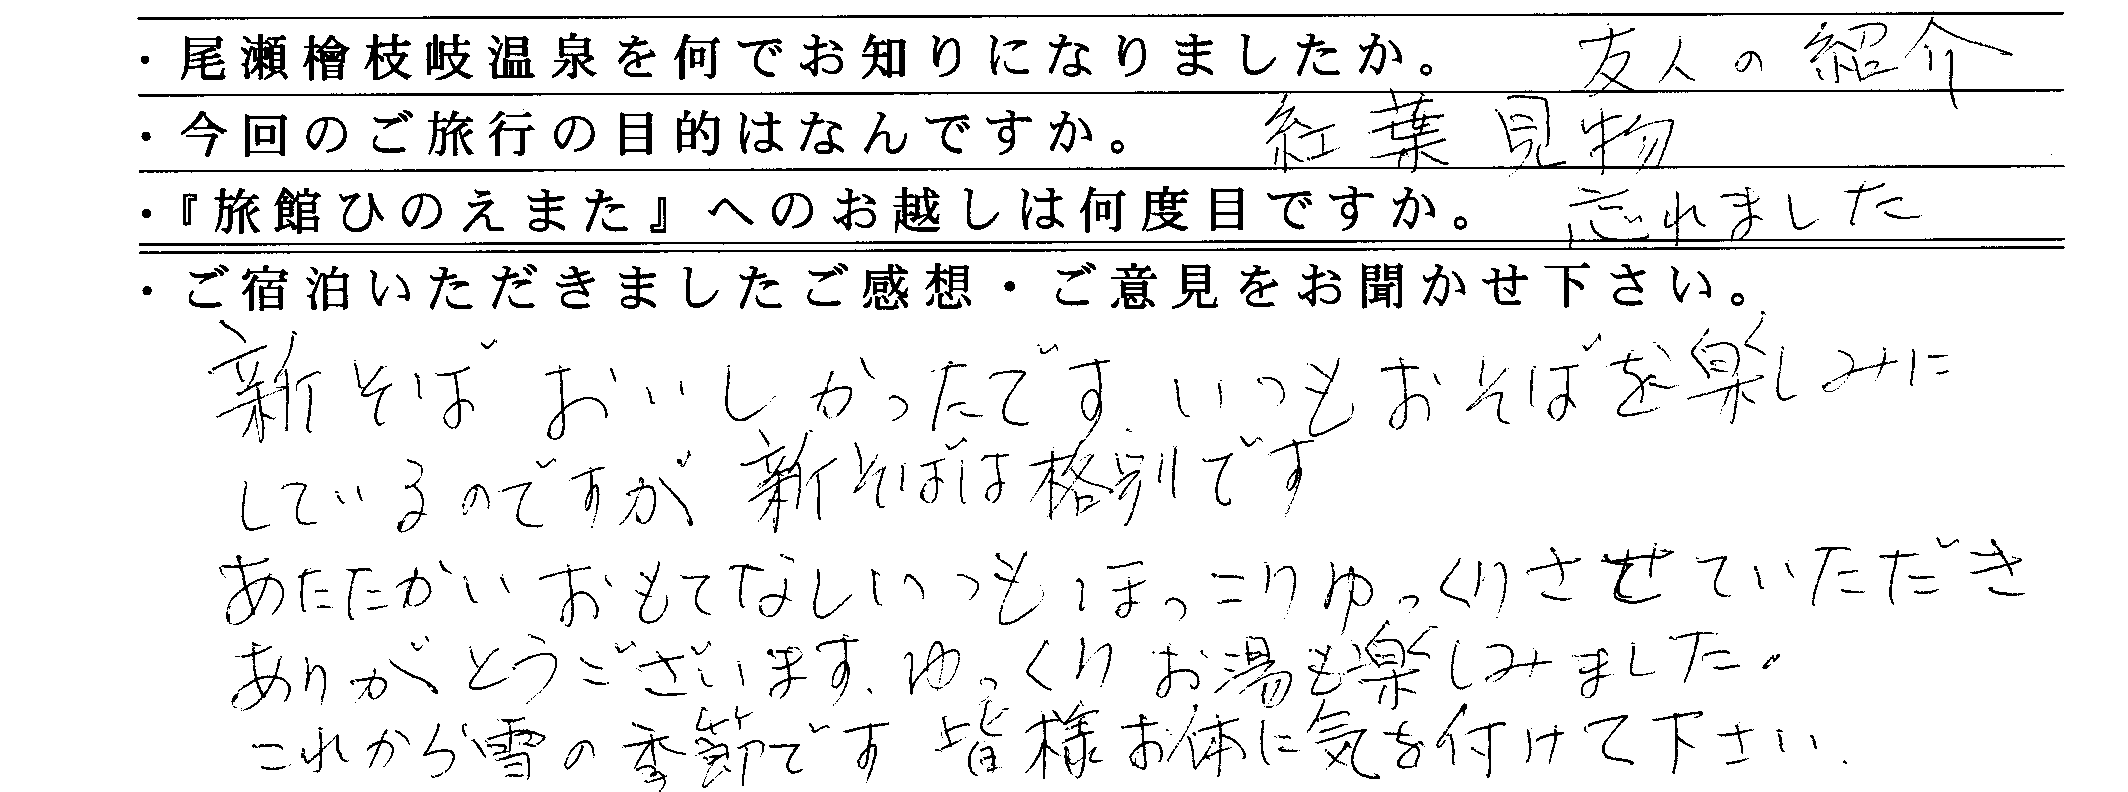 ・尾瀬檜枝岐温泉を何でお知りになりましたか。 友人の紹介
・今回のご旅行の目的はなんですか。 紅葉見物
・『旅館ひのえまた』へのお越しは何度目ですか。 忘れました
・ご宿泊いただきましたご感想・ご意見をお聞かせ下さい。
新そばおいしかったです。いつもおそばを楽しみに
しているのですが 新そばは格別です
あたたかいおもてなしいつもほっこりゆっくりさせていただき
ありがとうございます、ゆっくりお湯も楽しみました。
これから雪の季節です 皆様お体に気を付けて下さい.